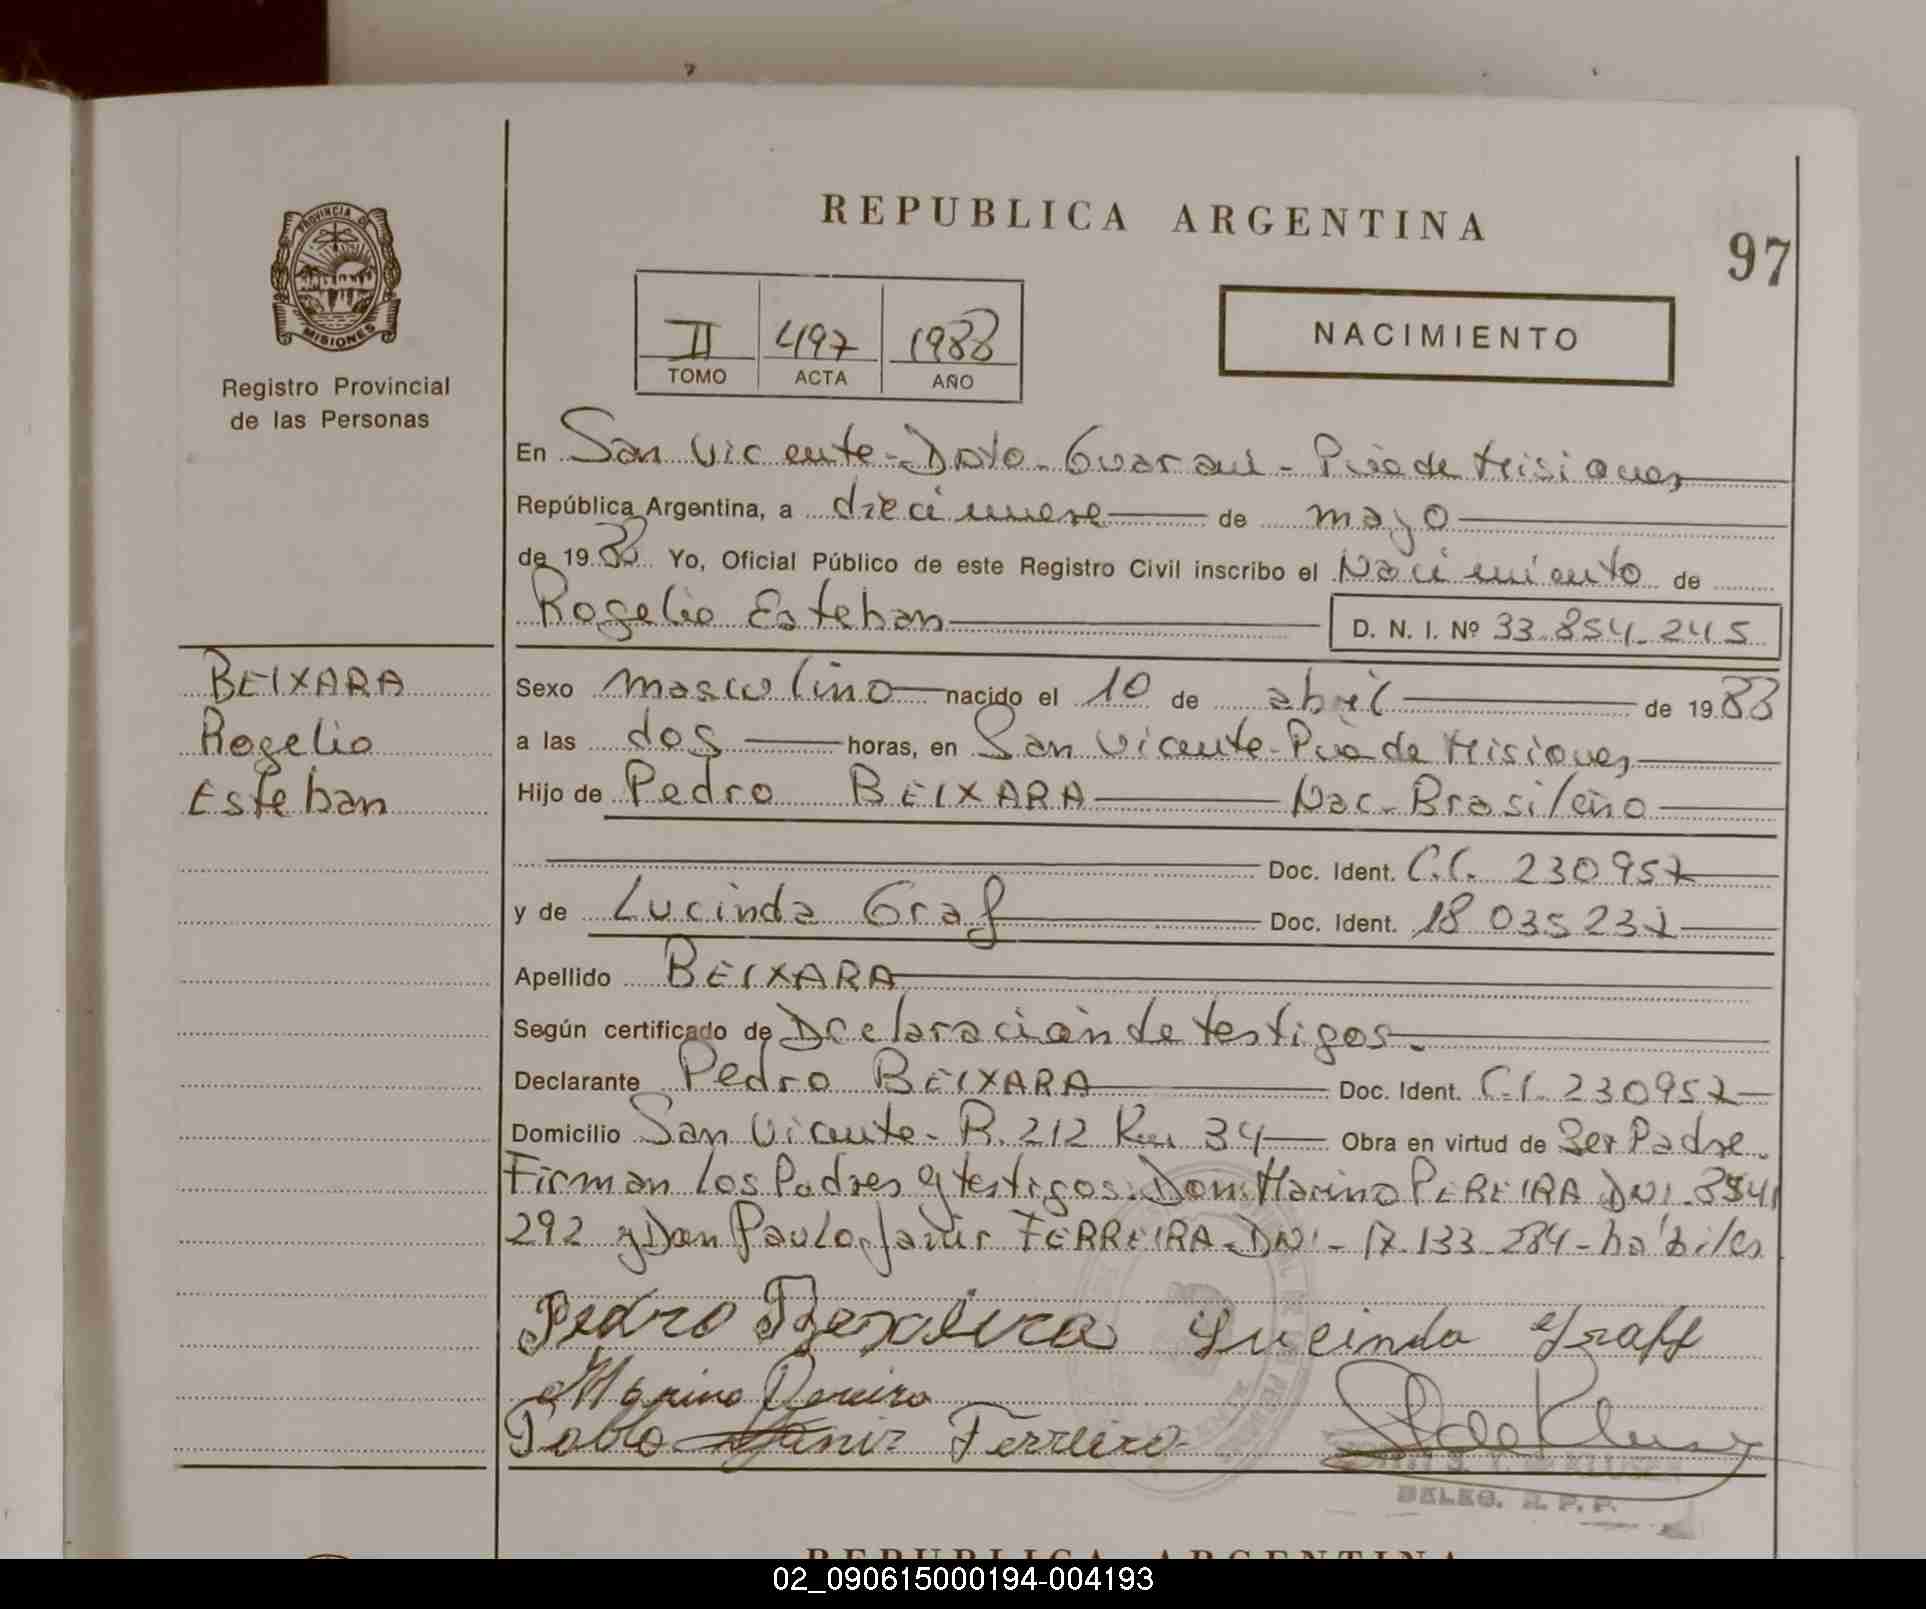 PROVINCIA DE
MISIONES
Registro Provincial
de las Personas
REPUBLICA ARGENTINA
97
II 497 1988
TOMO ACTA AÑO
NACIMIENTO
En San Vicente - Dpto. Guarani - Pcia de Misiones
República Argentina, a diecinueve de mayo
de 1988 Yo, Oficial Público de este Registro Civil inscribo el Nacimiento de
Rogelio Esteban D. N. I. Nº 33.854.245
BEIXARA
Rogelio
Esteban
Sexo masculino nacido el 10 de abril de 1988
a las dos horas, en San Vicente - Pcia de Misiones
Hijo de Pedro BEIXARA Nac. Brasileño
Doc. Ident. C.I. 230957
y de Lucinda Graf Doc. Ident. 18 035 237
Apellido BEIXARA
Según certificado de Declaración de testigos.
Declarante Pedro BEIXARA Doc. Ident. C.I. 230957
Domicilio San Vicente - R. 212 Km 34 Obra en virtud de Ser Padre.
Firman los Padres y testigos: Don Marino PEREIRA DNI
292 y Don Paulo Janir FERREIRA - DNI - 17.133.284 - hábiles
Pedro Bexeira Lucinda Graff
Marino Pereira
Pablo Janir Ferreira
DELEG. R. P. P.
REPUBLICA ARGENTINA
02_090615000194-004193